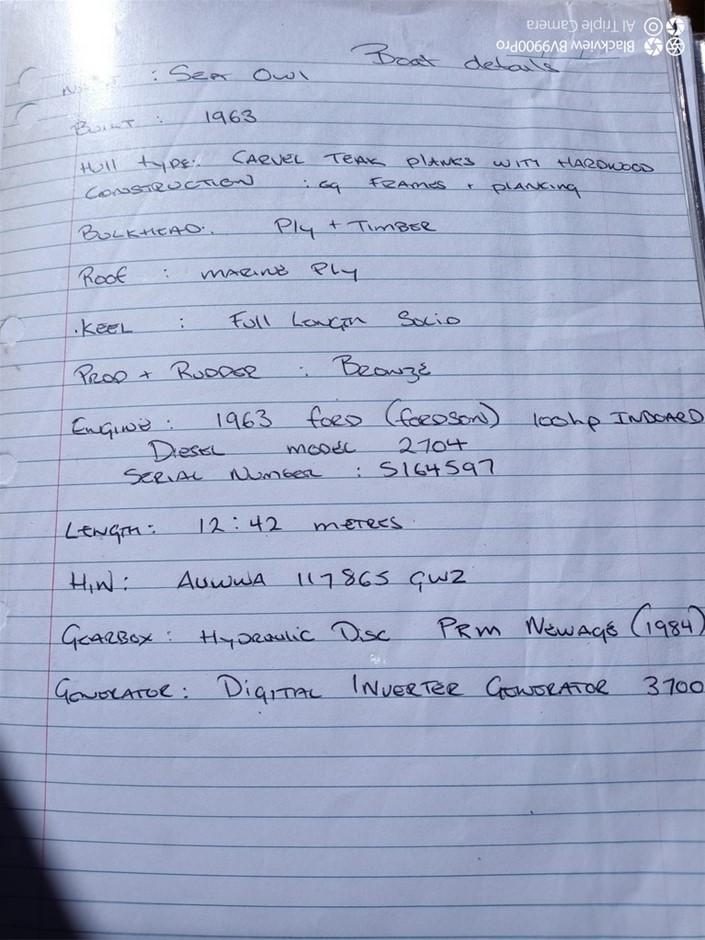 Blackview BV9900Pro
AI Triple Camera
Boat details
: SEA OWL
BUILT : 1963
HULL TYPE: CARVEL TEAK PLANKS WITH HARDWOOD
CONSTRUCTION : FRAMES + PLANKING
BULKHEAD: PLY + TIMBER
ROOF : MARINE PLY
KEEL : FULL LENGTH SOLID
PROP + RUDDER : BRONZE
ENGINE: 1963 FORD (FORDSON) 100hp INBOARD
DIESEL MODEL 2704
SERIAL NUMBER : S164597
LENGTH: 12:42 METRES
H,N: AUWWA 117865 GWZ
GEARBOX: HYDRAULIC DISC PRM NEWAGE (1984)
GENERATOR: DIGITAL INVERTER GENERATOR 3700